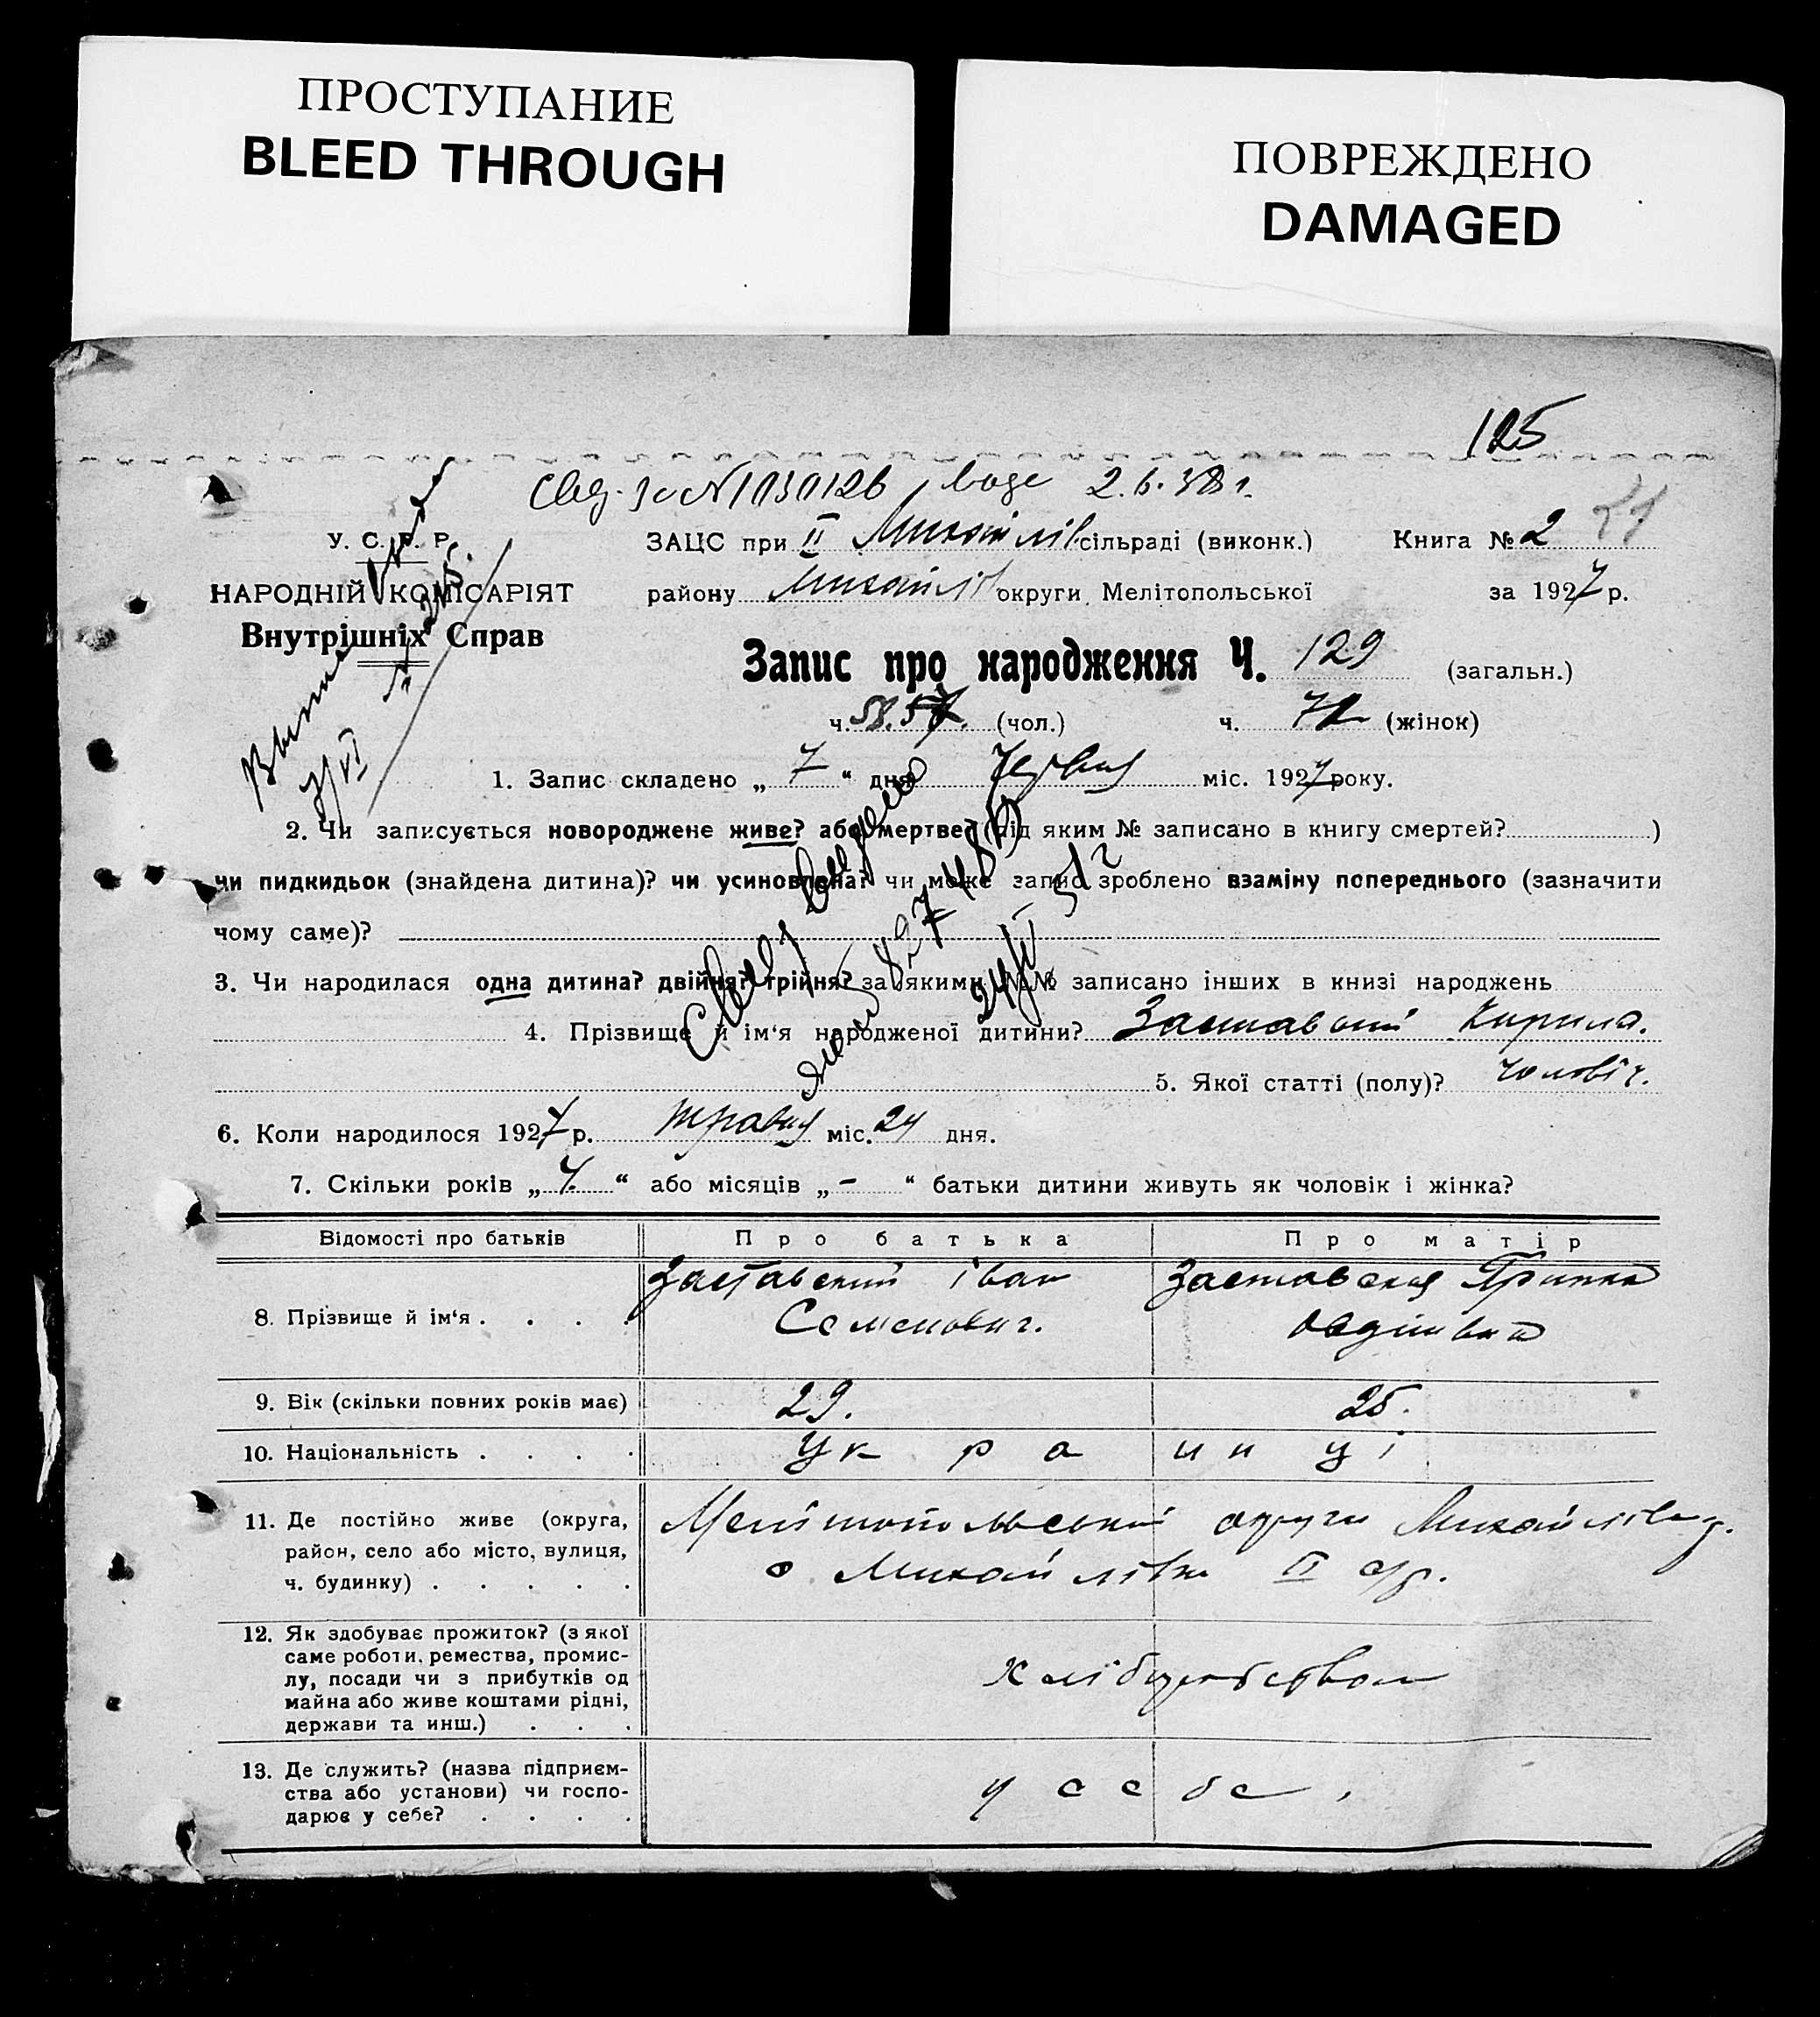 ПРОСТУПАНИЕ
BLEED THROUGH
ПОВРЕЖДЕНО
DAMAGED
125
N 1030126 2.6.38 г.
У. С. Р. Р.
НАРОДНІЙ КОМІСАРІЯТ
Внутрішніх Справ
ЗАЦС при II Михайлів сільраді (виконк.) Книга № 2
району Михайлів округи Мелітопольської за 1927 р.
Запис про народження Ч. 129 (загальн.)
ч. 58. (чол.) ч. (жінок)
1. Запис складено „ 7 “ дня Червня міс. 1927 року.
2. Чи записується новороджене живе? або мертве? (під яким № записано в книгу смертей? )
чи пидкидьок (знайдена дитина)? чи усиновлена? чи може запис зроблено взаміну попереднього (зазначити
чому саме)?
3. Чи народилася одна дитина? двійня? трійня? за якими №№ записано інших в книзі народжень
4. Прізвище й ім‘я народженої дитини? Заставский Кирило.
5. Якої статті (полу)? чоловіч.
6. Коли народилося 1927 р. травня міс. 24 дня.
7. Скільки років „ 7. “ або місяців „ - “ батьки дитини живуть як чоловік і жінка?
Відомості про батьків Про батька Про матір
8. Прізвище й ім‘я . . . .
Заставский Іван
Семенович.
Заставская
9. Вік (скільки повних років має) 29. 25.
10. Національність . . . . Укра инці
11. Де постійно живе (округа,
район, село або місто, вулиця,
ч. будинку) . . . . .
Мелітопольської округи Михайлівск р.
с Михайлівки II с/р.
12. Як здобуває прожиток? (з якої
саме роботи, ремества, промис-
лу, посади чи з прибутків од
майна або живе коштами рідні,
держави та инш.) . . .
хліборобством
13. Де служить? (назва підприєм-
ства або установи) чи госпо-
дарює у себе? . . . .
у себе.